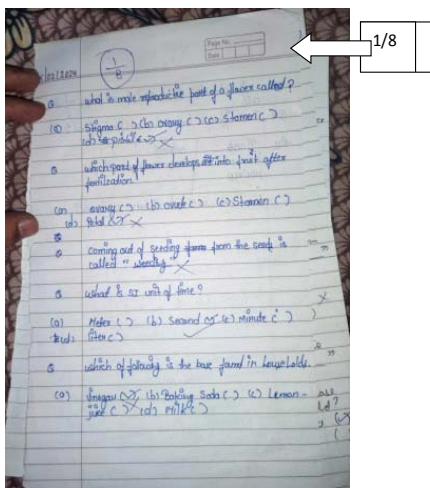 Page No.
Date
1/8
1
8
/02/2024
Q what is male reproductive part of a flower called?
(a) Stigma ( ) (b) ovary ( ) (c) Stamen ( )
(d)
Q which part of flower develops into fruit after
fertilization
(a) ovary ( ) (b) ovule ( ) (c) Stamen ( )
(d) Petal
Q
Q Coming out of seeding from the seeds is
called "
Q What is SI unit of time?
(a) Meter ( ) (b) Second (c) Minute ( )
(d) liter ( )
Q which of following is the base found in households.
(a) Vinegar (b) Baking Soda ( ) (c) Lemon-
juice ( ) (d) Milk ( )